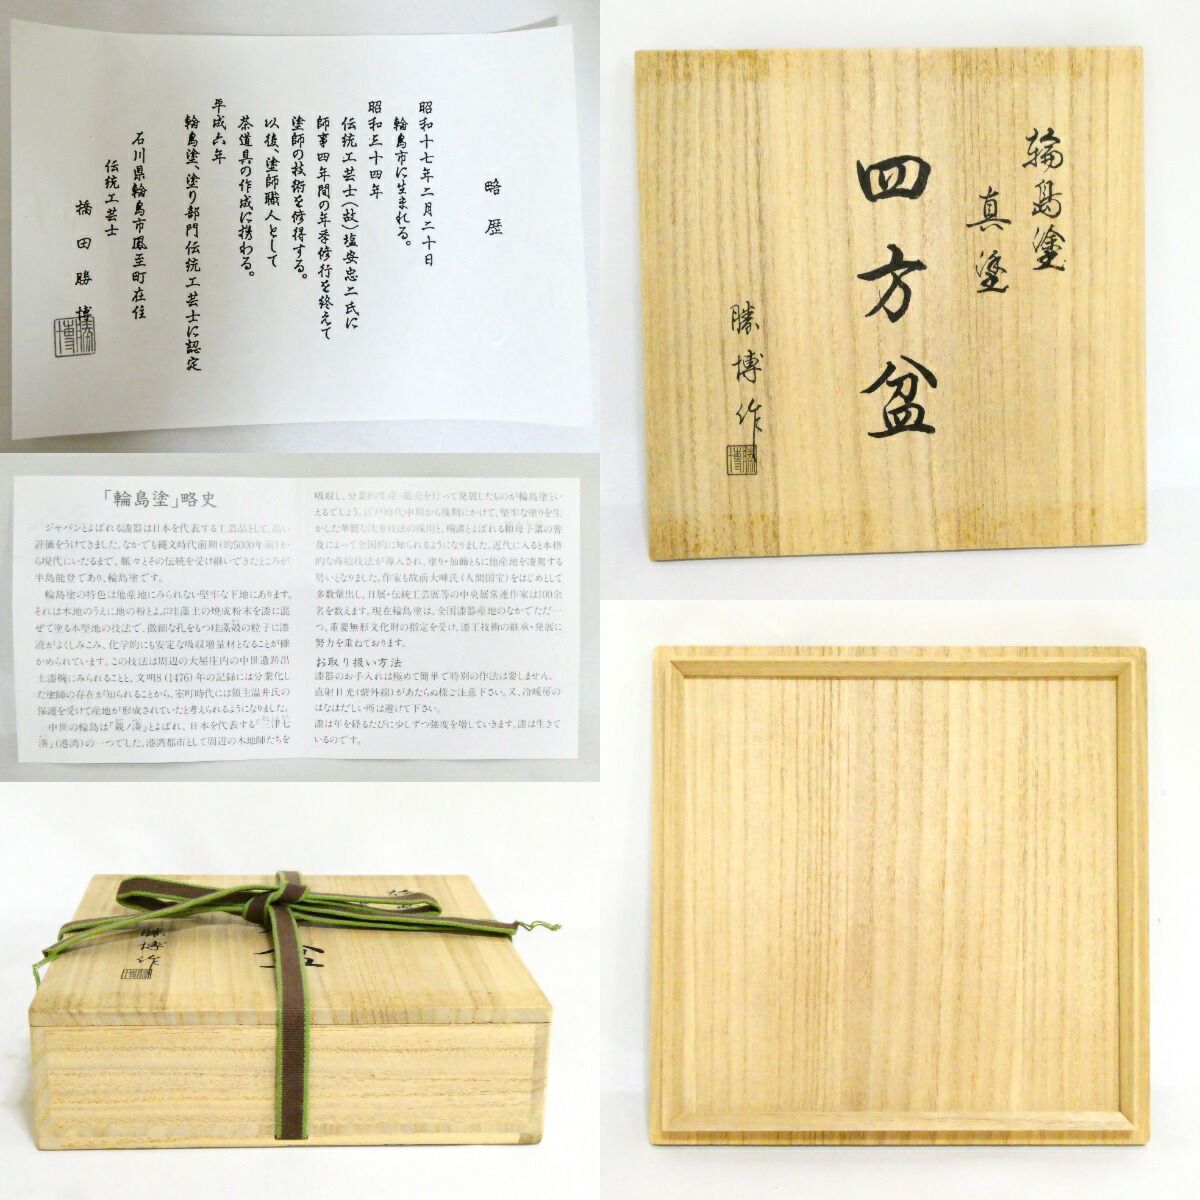 略歴
昭和十七年二月二十日
輪島市に生まれる。
昭和三十四年
伝統工芸士(故)塩安忠二氏に
師事四年間の年季修行を終えて
塗師の技術を修得する。
以後、塗師職人として
茶道具の作成に携わる。
平成六年
輪島塗、塗り部門伝統工芸士に認定
石川県輪島市鳳至町在住
伝統工芸士
橋田勝博
勝博
輪島塗
真塗
四方盆
勝博作
勝博
「輪島塗」略史
ジャパンとよばれる漆器は日本を代表する工芸品として、高い
評価をうけてきました。なかでも縄文時代前期(約5000年前)か
ら現代にいたるまで、脈々とその伝統を受け継いできたところが
半島能登であり、輪島塗です。
輪島塗の特色は他産地にみられない堅牢な下地にあります。
それは木地のうえに地の粉とよぶ珪藻土の焼成粉末を漆に混
ぜて塗る本堅地の技法で、微細な孔をもつ珪藻殻の粒子に漆
液がよくしみこみ、化学的にも安定な吸収増量材となることが確
かめられています。この技法は周辺の大屋庄内の中世遺跡出
土漆椀にみられることと、文明8(1476)年の記録には分業化し
た塗師の存在が知られることから、室町時代には領主温井氏の
保護を受けて産地が形成されていたと考えられるようになりました。
中世の輪島は「親ノ湊」とよばれ、日本を代表する「三津七
湊」(港湾)の一つでした。港湾都市として周辺の木地師たちを
吸収し、分業的生産・販売を行って発展したものが輪島塗とい
えるでしょう。江戸時代中期から後期にかけて、堅牢な塗りを生
かした華麗な沈金技法の採用と、椀講とよばれる頼母子講の普
及によって全国的に知られるようになりました。近代に入ると本格
的な蒔絵技法が導入され、塗り・加飾ともに他産地を凌駕する
勢いとなりました。作家も故前大峰氏(人間国宝)をはじめとして
多数輩出し、日展・伝統工芸展等の中央展常連作家は100余
名を数えます。現在輪島塗は、全国漆器産地のなかでただ一
つ、重要無形文化財の指定を受け、漆工技術の継承・発展に
努力を重ねております。
お取り扱い方法
漆器のお手入れは極めて簡単で特別の作法は要しません。
直射日光(紫外線)があたらぬ様ご注意下さい。又、冷暖房の
はなはだしい所は避けて下さい。
漆は年を経るたびに少しずつ強度を増していきます。漆は生きて
いるのです。
盆
勝博作
勝博